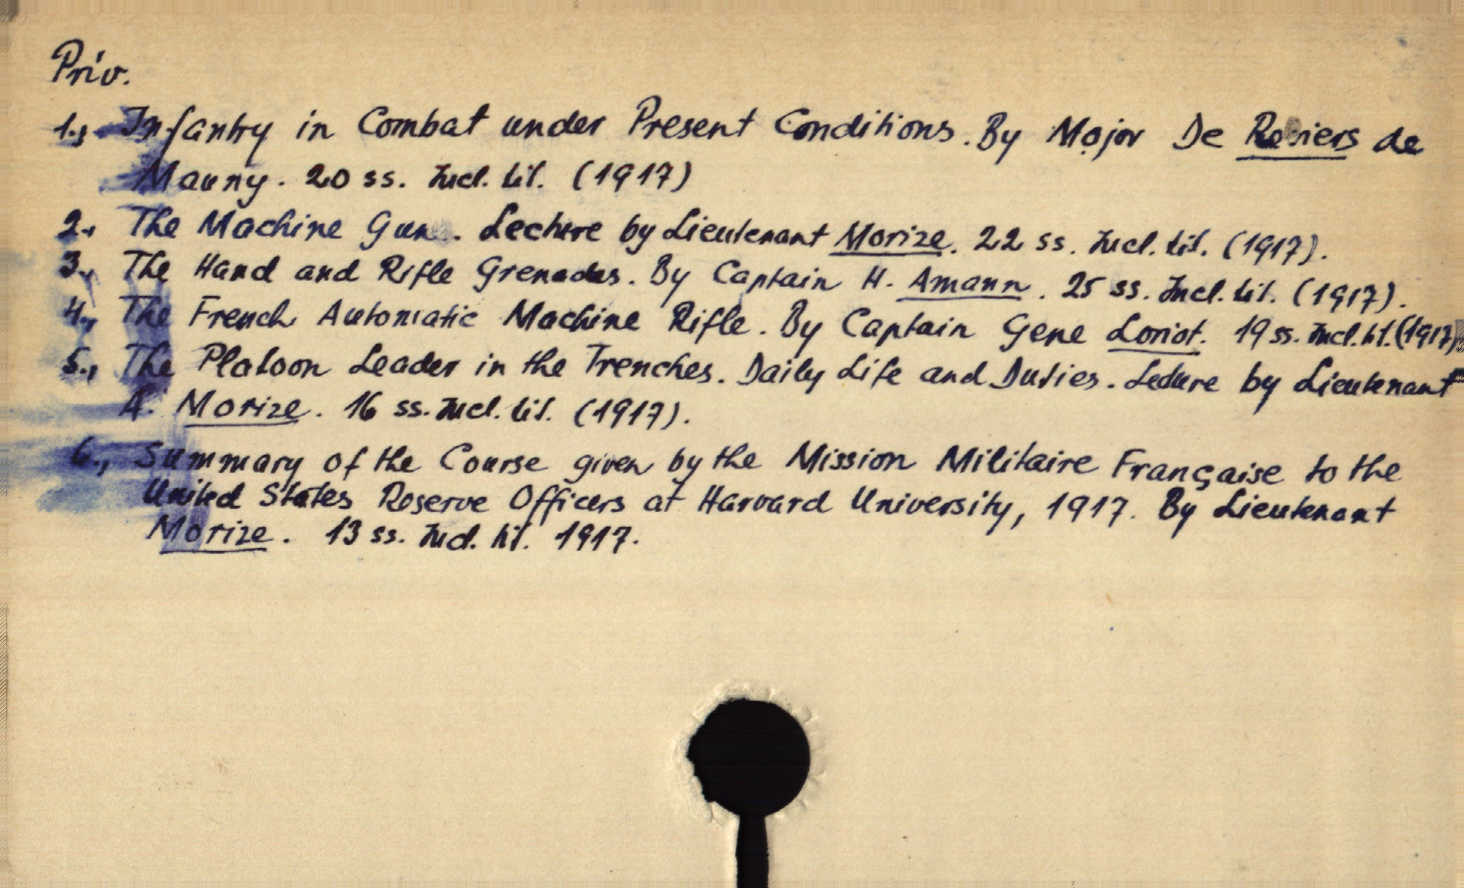 Priv.
1., Infantry in Combat under Present Conditions. By Major De Resiers de
Mauny. 20 ss. Incl. tit. (1917)
2., The Machine Gun. Lecture by Lieutenant Morize. 22 ss. Incl. tit. (1917).
3., The Hand and Rifle Grenades. By Captain H. Amann. 25 ss. Incl. tit. (1917).
4., The French Automatic Machine Rifle. By Captain Gene Loriot. 19 ss. Incl. tit. (1917).
5., The Platoon Leader in the Trenches. Daily Life and Duties. Lecture by Lieutenant
A. Morize. 16 ss. Incl. tit. (1917).
6., Summary of the Course given by the Mission Militaire Française to the
United States Reserve Officers at Harvard University, 1917. By Lieutenant
Morize. 13 ss. Incl. tit. 1917.